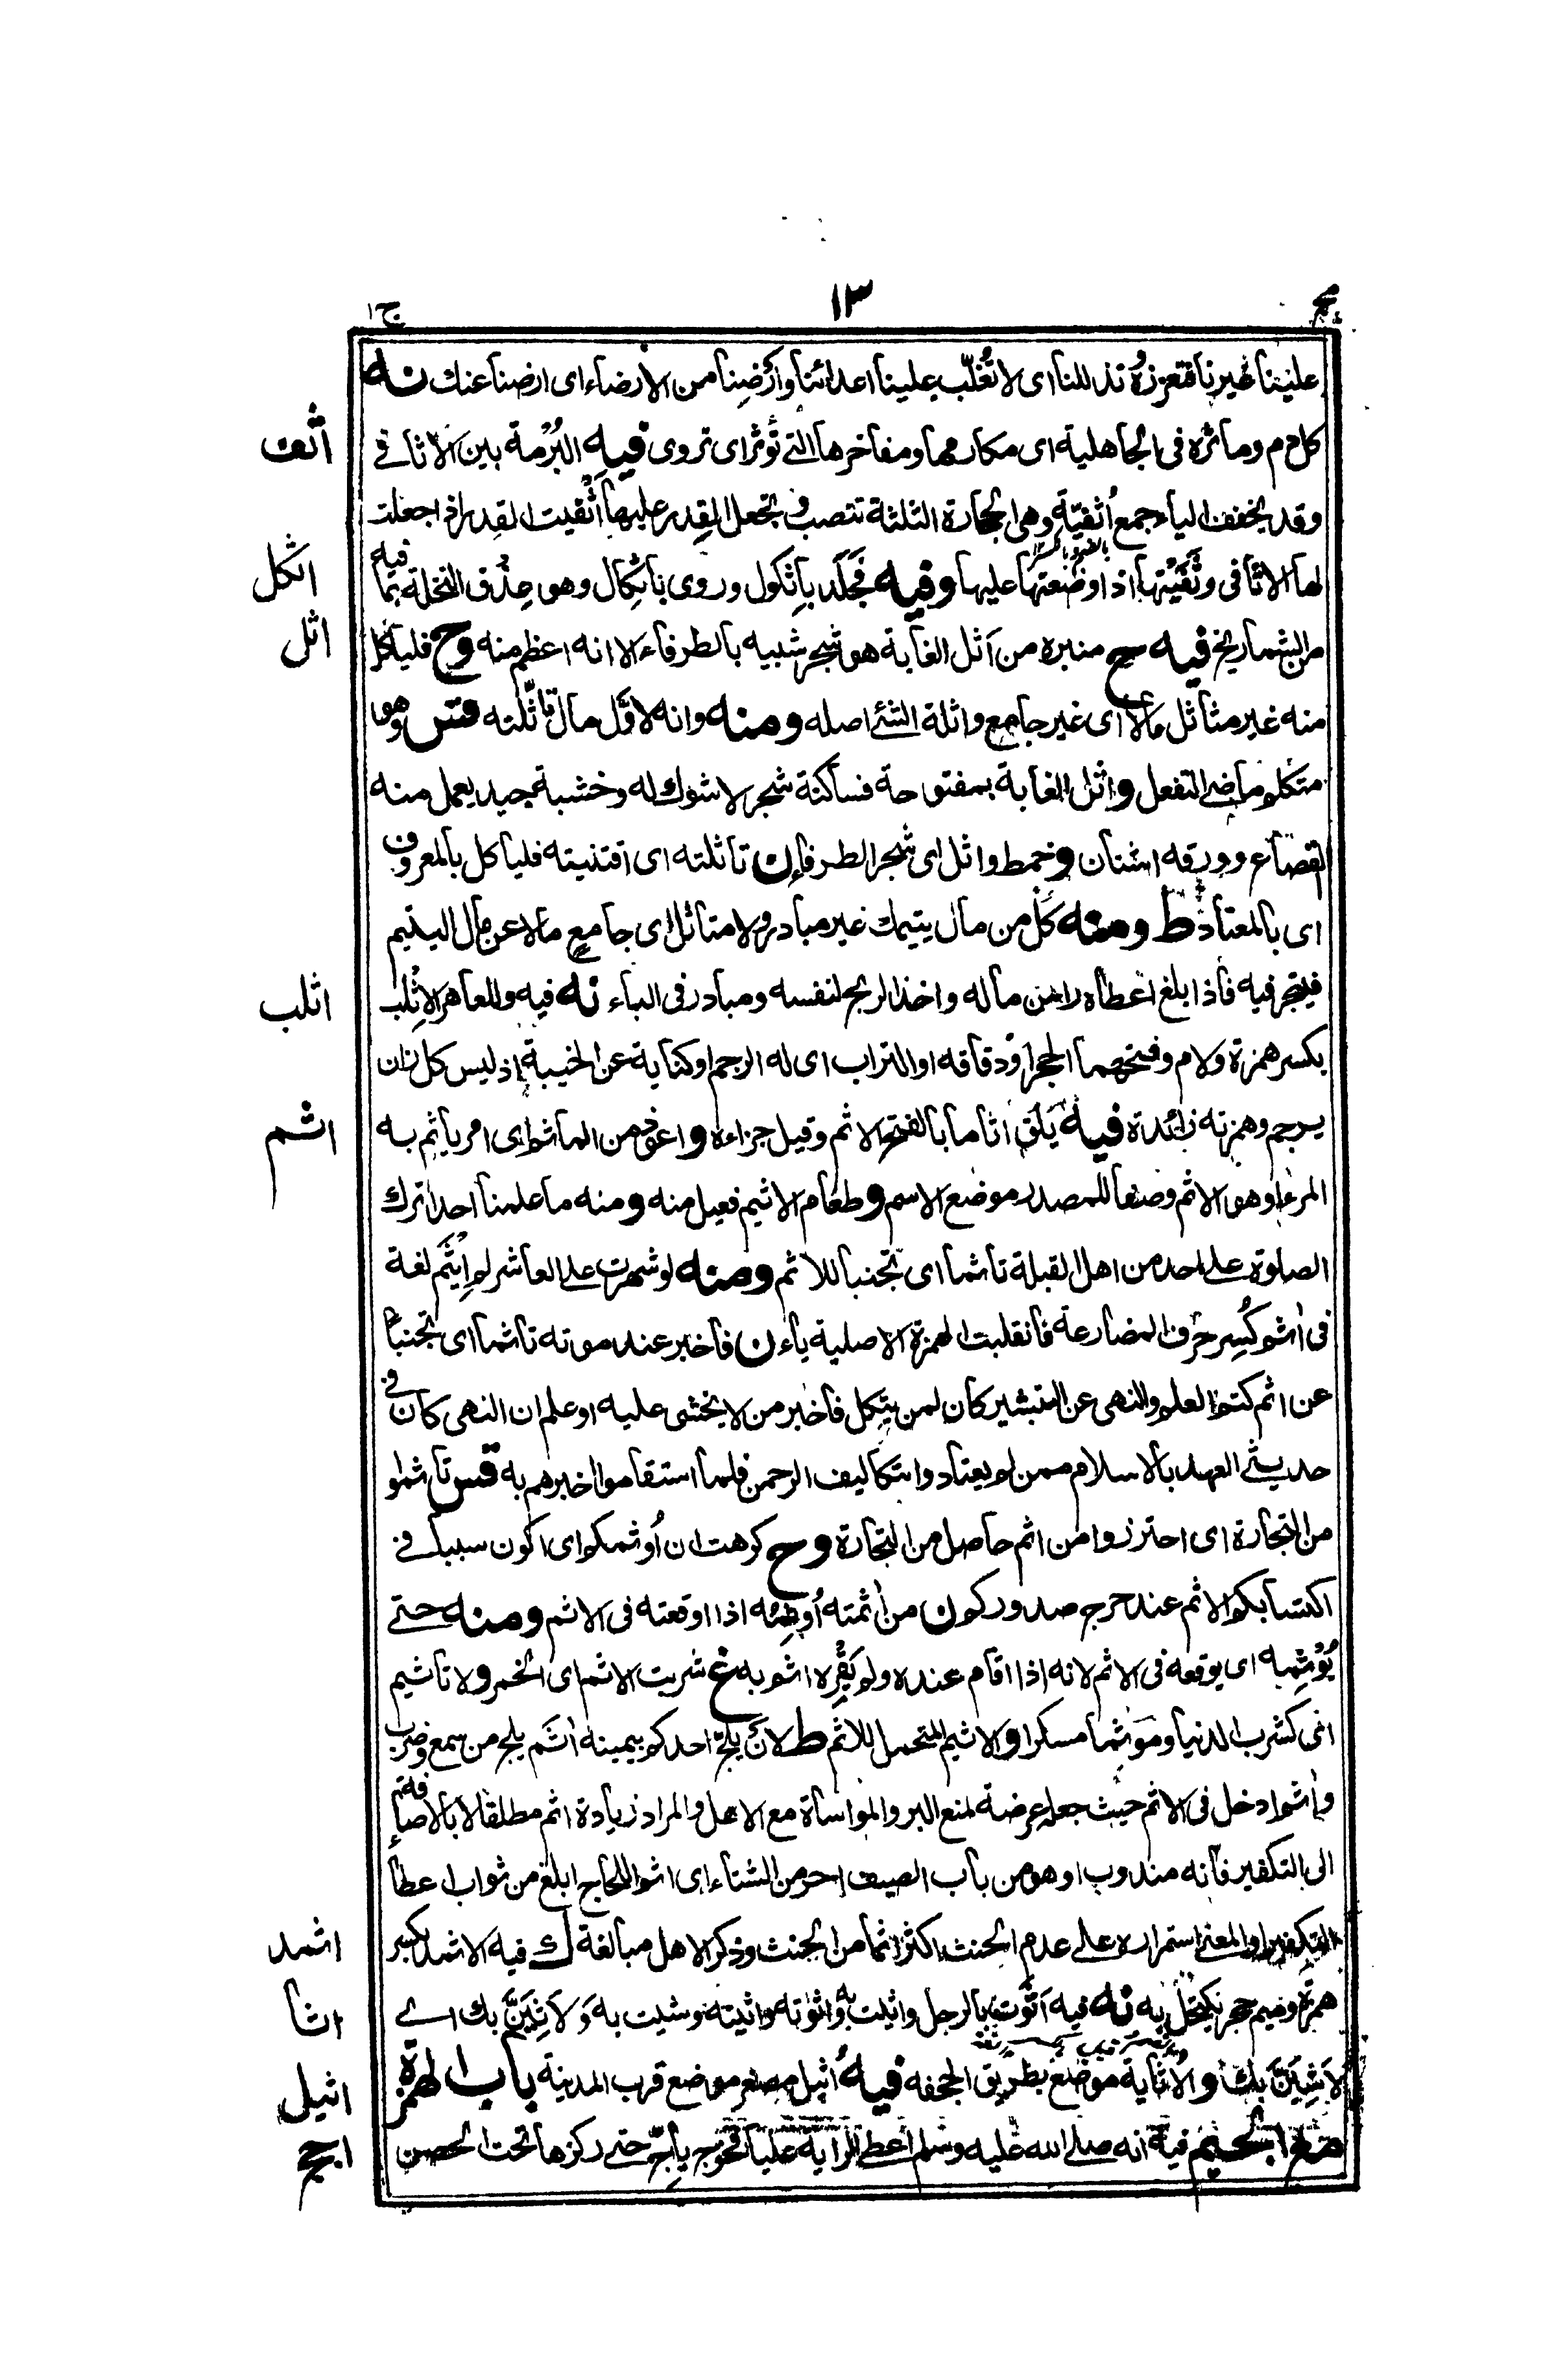 مج ١٣ ج١
علينا غيرنا فتعززه تذللنا اى لا تُغلّب علينا اعدائنا وأَرضِنا من الارضاء اى ارضنا عنك نه
اثف
كل دم وماثرة فى الجاهلية اى مكارمها ومفاخرها التى تُؤثر اى تروى فيه البُرْمة بين الاثافى
وقد يخفف الياء جمع أُثفيّة وهى الحجارة الثلثة تنصب وتجعل القِدر عليها أَثْفيت القِدر اذا جعلت
اثكل
لها الاثافى وثَفَّيْتها اذا وضعتها عليها وفيه فجَلد بأثكول وروى باثكال وهو عِذْق النخلة بما فيه
اثل
من الشماريخ فيه ح منبره من أثل الغابة هو شجر شبيه بالطرفاء الا انه اعظم منه وح فليأكل
منه غير متأثل مالا اى غير جامع واثلة الشئ اصله ومنه وانه لاوّل مال تأثّلته قس وهو
متكلم ماضى التفعل واثل الغابة بمفتوحة فساكنة شجر لا شوك له وخشبة جيد يعمل منه
القصاع وورقه اشنان وخمط واثل اى شجر الطرفا ن تاثلته اى اقتنيته فليأكل بالمعروف
اى بالمعتاد ط ومنه كُل من مال يتيمك غير مبادر ولا متأثل اى جامع مالا عن مال اليتيم
اثلب
فيتجر فيه فاذا بلغ اعطاه راس ماله واخذ الربح لنفسه ومبادر فى الباء نه فيه وللعاهر الاثلب
بكسر همزة ولام وفتحهما الحجر او دقاقه او التراب اى له الرجم او كناية عن الخيبة إذ ليس كل زان
اثم
يرجم وهمزته زائدة فيه يَلْقَ اثاما بالفتح الاثم وقيل جزاءه واعوذ من الماثم اى امر يأثم به
المرء او هو الاثم وضعا للمصدر موضع الاسم وطعام الاثيم فعيل منه ومنه ما علمنا احدا ترك
الصلوة على احد من اهل القبلة تأثما اى تجنبا للاثم ومنه لو شهرت على العاشر لم إِيثَم لغة
فى اثم كُسِر حرف المضارعة فانقلبت الهمزة الاصلية ياء ن فاخبر عند موته تأثما اى تجنبا
عن اثم كتم العلم والنهى عن التبشير كان لمن يتكل فاخبر من لا يخشى عليه او علم ان النهى كان فى
حديثى العهد بالاسلام ممن لم يعتادوا تكاليف الرحمن فلما استقاموا اخبرهم به قس تاثموا
من التجارة اى احترزوا من اثم حاصل من التجارة وح كرهت ان أُوثمكم اى اكون سببا فى
اكتسابكم الاثم عند حرج صدوركم ن من أثمته أُوثِمُه اذا اوقعته فى الاثم ومنه حتى
يُؤْثِمه اى يوقعه فى الاثم لانه اذا اقام عنده ولم يَقْرِه اثم به غ شربت الاثم اى الخمر ولا تاثيم
اى كشرب الدنيا ومؤثما مسكرا والاثيم المتحمل للاثم ط لأن يلجّ احدكم بيمينه أثَم يلج من سمع وضرب
وأثم ادخل فى الاثم حيث جعله عرضة لمنع البر والمواساة مع الاهل والمراد زيادة اثم مطلقا لا بالاضافة
الى التكفير فانه مندوب او هو من باب الصيف احر من الشتاء اى اثم اللجاج ابلغ من ثواب اعطا
اثمد
التكفير او المعنى استمراره على عدم الحنث اكثر اثما من الحنث وذكر الاهل مبالغة ك فيه الاثمد بكسر
اثا
همزة وميم حجر يكتحل به نه فيه أَثوت بالرجل واثيت به واثوته واثيته وشيت به ولاَثِيَنَّ بك اى
اثيل
لَاَشِيَنَّ بك والأُثاية موضع بطريق الجحفه فيه أُثيل مصغر موضع قرب المدينة باب الهمزة
اجج
مع الجيم فيه انه صلى الله عليه وسلم اعطى الراية عليا فخرج يأجّ حتى ركزها تحت الحصن